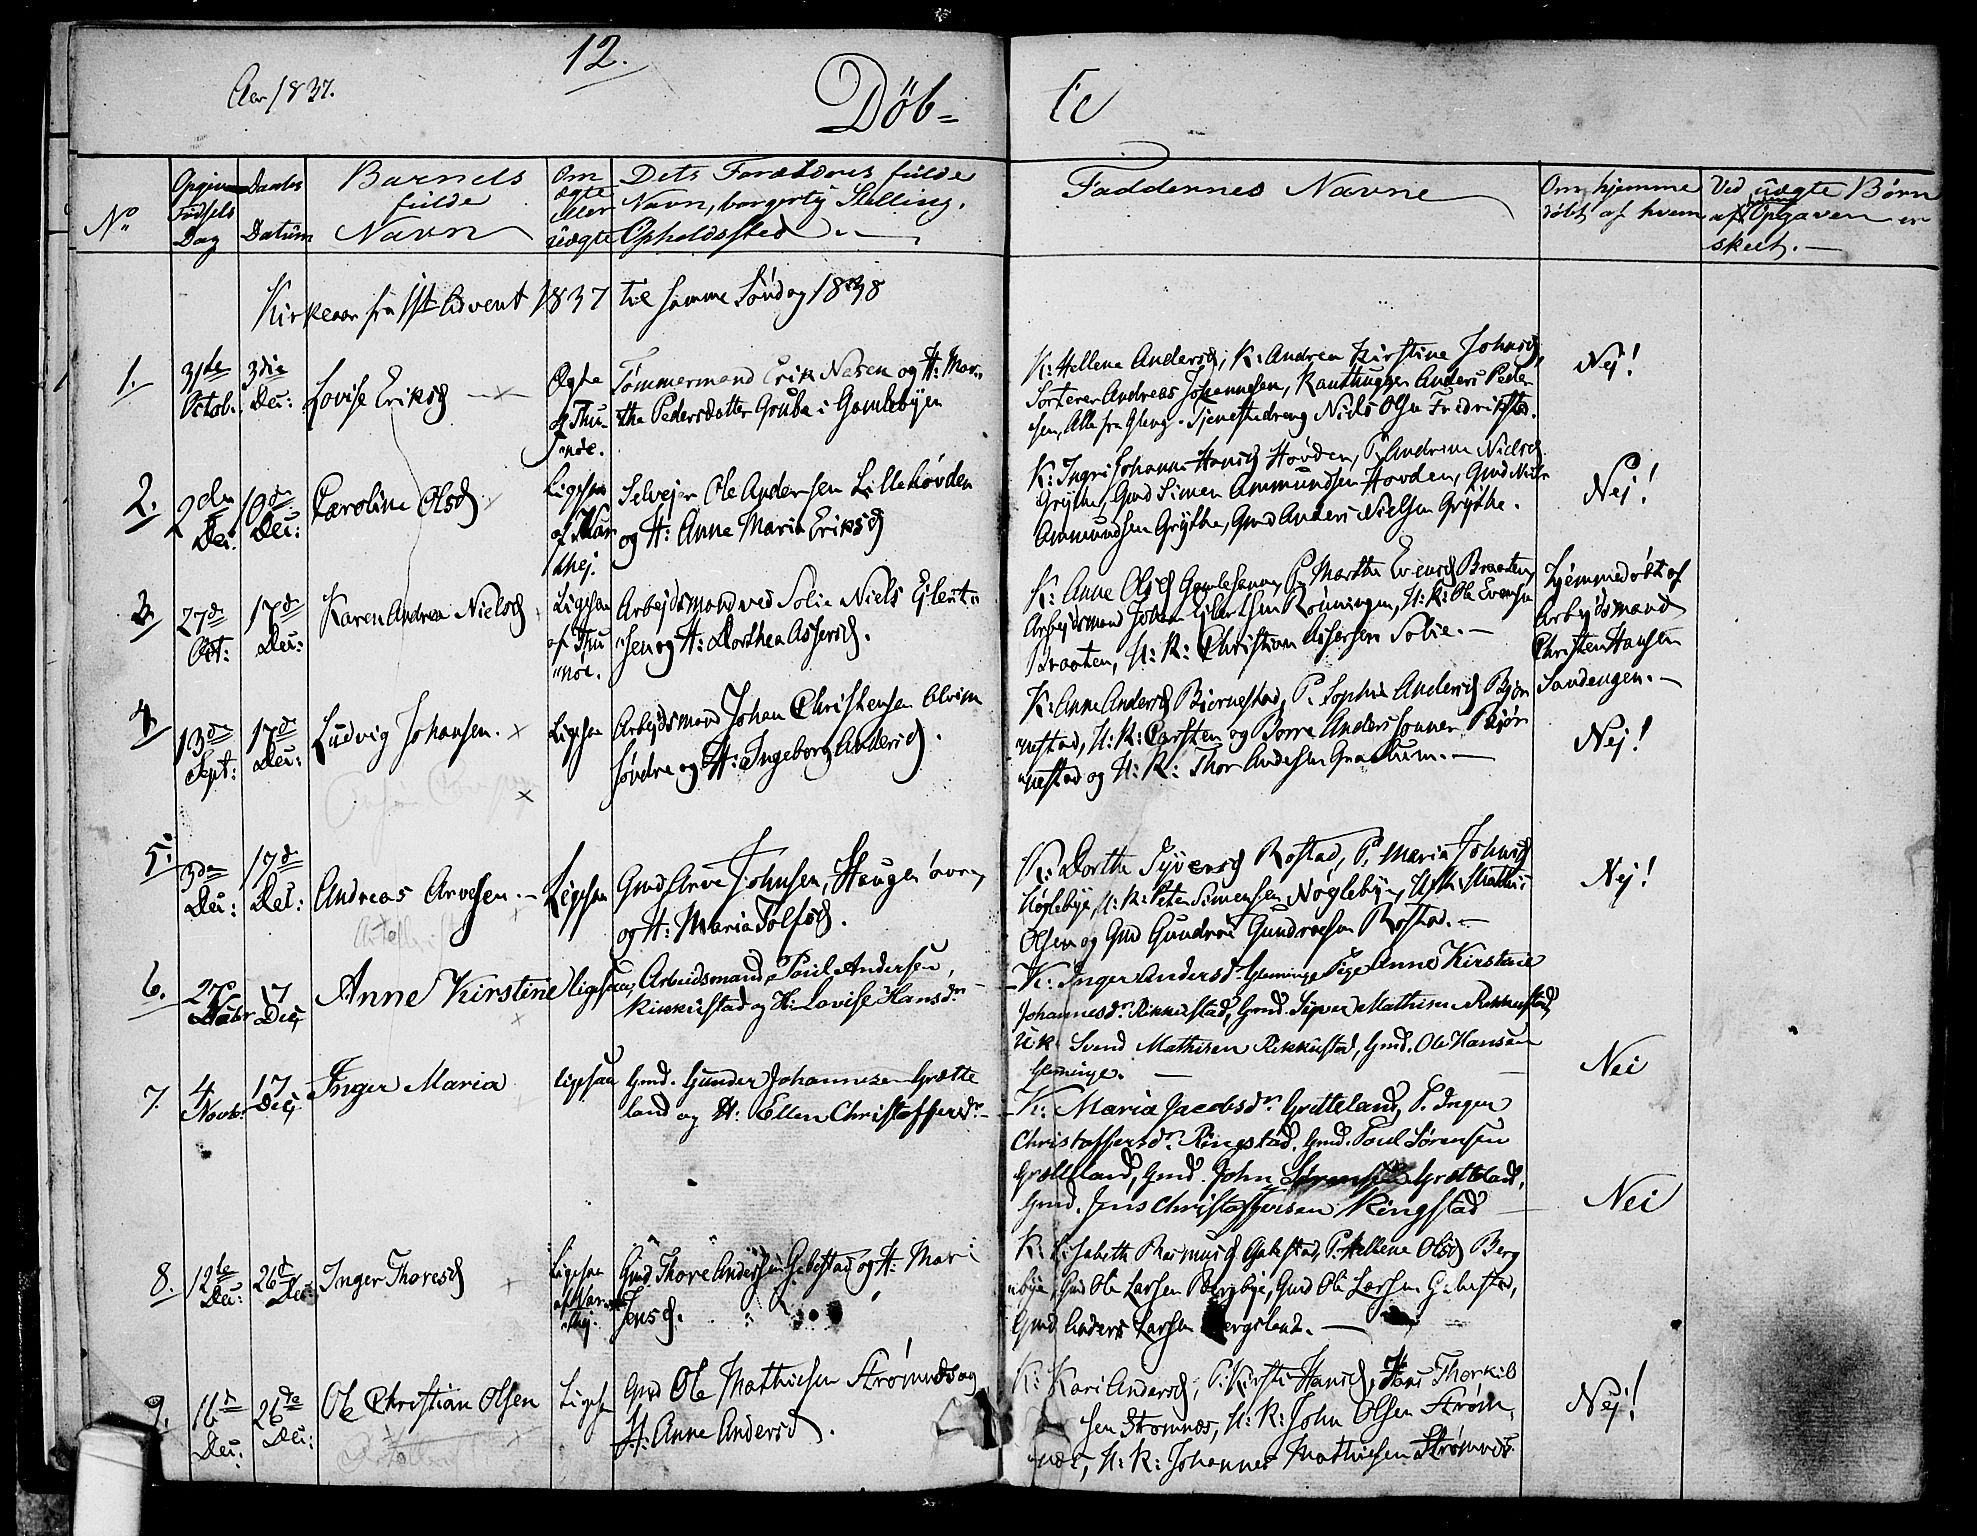 12.
Aar 1837.
Døb=
te
No
Opgiven Fødsels Dag
Daabs Datum
Barnets fulde Navn
Om ægte eller uægte
Dets Forældres fulde
Navn, borgerlig Stilling,
Opholdssted
Faddernes Navne
Om hjemme
døbt af hvem
Ved uægte Børn
af Opgaven er
skeet.
Kirkeaar fra 1st Advent 1837 til samme Søndag 1838
1.
31te Octob.
3die Dec:
Lovise Eriksd
Ægte af Thu-
nøe.
Tømmermand Erik Nasen og H: Mar-
tha Pedersdatter Gruba i Gamlebyen
K: Hellene Andersd, K: Andrea Kirstine Johnsd,
Sorterer Andreas Johannesen, Kanthugger Anders Peder
sen, Alle fra Gleng. Tjenestedreng Niels Olsen Fredrikstad.
Nej!
2.
2den Dec:
10de Dec:
Caroline Olsd
Ligesaa
Selvejer Ole Andersen Lillehövden
og H: Anne Maria Eriksd
K: Ingri Johanne Hansd Hovden, P. Andrine Nielsd
Grythe, Gmd Simen Ammundsen Hovden, Gmd
Ammundsen Grythe, Gmd Anders Nielsen Grythe.
Nej!
3.
27d Oct:
17d Dec:
Karen Andrea Nielsd
Ligesaa
af Thu
nöe.
Arbejdsmand ved Solie Niels Ejlert-
sen og H: Dorthea Assersd.
K: Anne Olsd P. Marthe Evensd Braaten,
Arbejdsmand Johan Eilertsen Rönningen, U: K: Ole Evensen
Braaten, U: K: Christian Assersen Solie.
Hjemmedöbt af
Arbejdsmand
Christen Hansen
Sandengen.
4.
13d Sept:
17d Dec:
Ludvig Johansen.
Ligesaa
Arbejdsmand Johan Christensen Alvim
søndre og H: Ingeborg Andersd.
K: Anne Andersd Bjørnestad, P. Sophie Andersd Bjør
nestad, U: K: Carsten og Borre Anderssønner Bjør
nestad og U: K: Thor Andersen Graalum.
Nej!
5.
3de Dec:
17d Dec:
Andreas Arvesen.
Ligesaa
Gmd Arve Johnsen, Haugen övre,
og H: Maria Tolfsd.
K: Dorthe Syversd Rostad, P. Maria Johnsd
Nöglebye, U: K: Peter Simensen Nöglebye, U: K:
Olsen og Gmd Gundroe Gundroesen Rostad.
Nej!
6.
27
17 Dec
Anne Kirstine
ligesaa
Arbeidsmand Poul Andersen,
Rikkustad og H: Lovise Hansdr.
K: Inger Andersd. Gleminge Pige Anne Kirstine
Johannesdr. Rikkustad, Gmd. Siver Mathisen Rikkustad,
U.K. Svend Mathisen Rikkustad, Gmd. Ole Hansen
Gleminge.
Nei
7.
4 Novbr.
17 Dec
Inger Maria
ligesaa
Gmd. Gunder Johannesen Grette
land og H: Ellen Christoffersdr.
K: Maria Jacobsdr. Gretteland, P. Inger
Christoffersdr. Ringstad, Gmd. Poul Sørensen
Gretteland, Gmd. John Sørensen Gretteland,
Gmd. Jens Christoffersen Ringstad
Nei
8.
12te Dec:
26d Dec:
Inger Thoresd
Ligesaa
Gmd Thore Andersen Gabestad og H: Mari
Jensd.
K: Elisabeth Rasmusd Gabestad, P. Hellene Olsd Berg
bye, Gmd Ole Larsen Bergbye, Gmd Ole Larsen Gabestad,
Gmd Anders Larsen Bergsland.
9.
16d Dec:
26de Dec:
Ole Christian Olsen
Ligesaa
Gmd Ole Mathiesen Strømnes og
H: Anne Andersd.
K: Kari Andersd, P. Kirsti Hansd, Hans Thorkild
sen Strømnes, U: K: John Olsen Strøm-
næs, U: K: Johannes Mathiesen Strømnæs.
Nej!